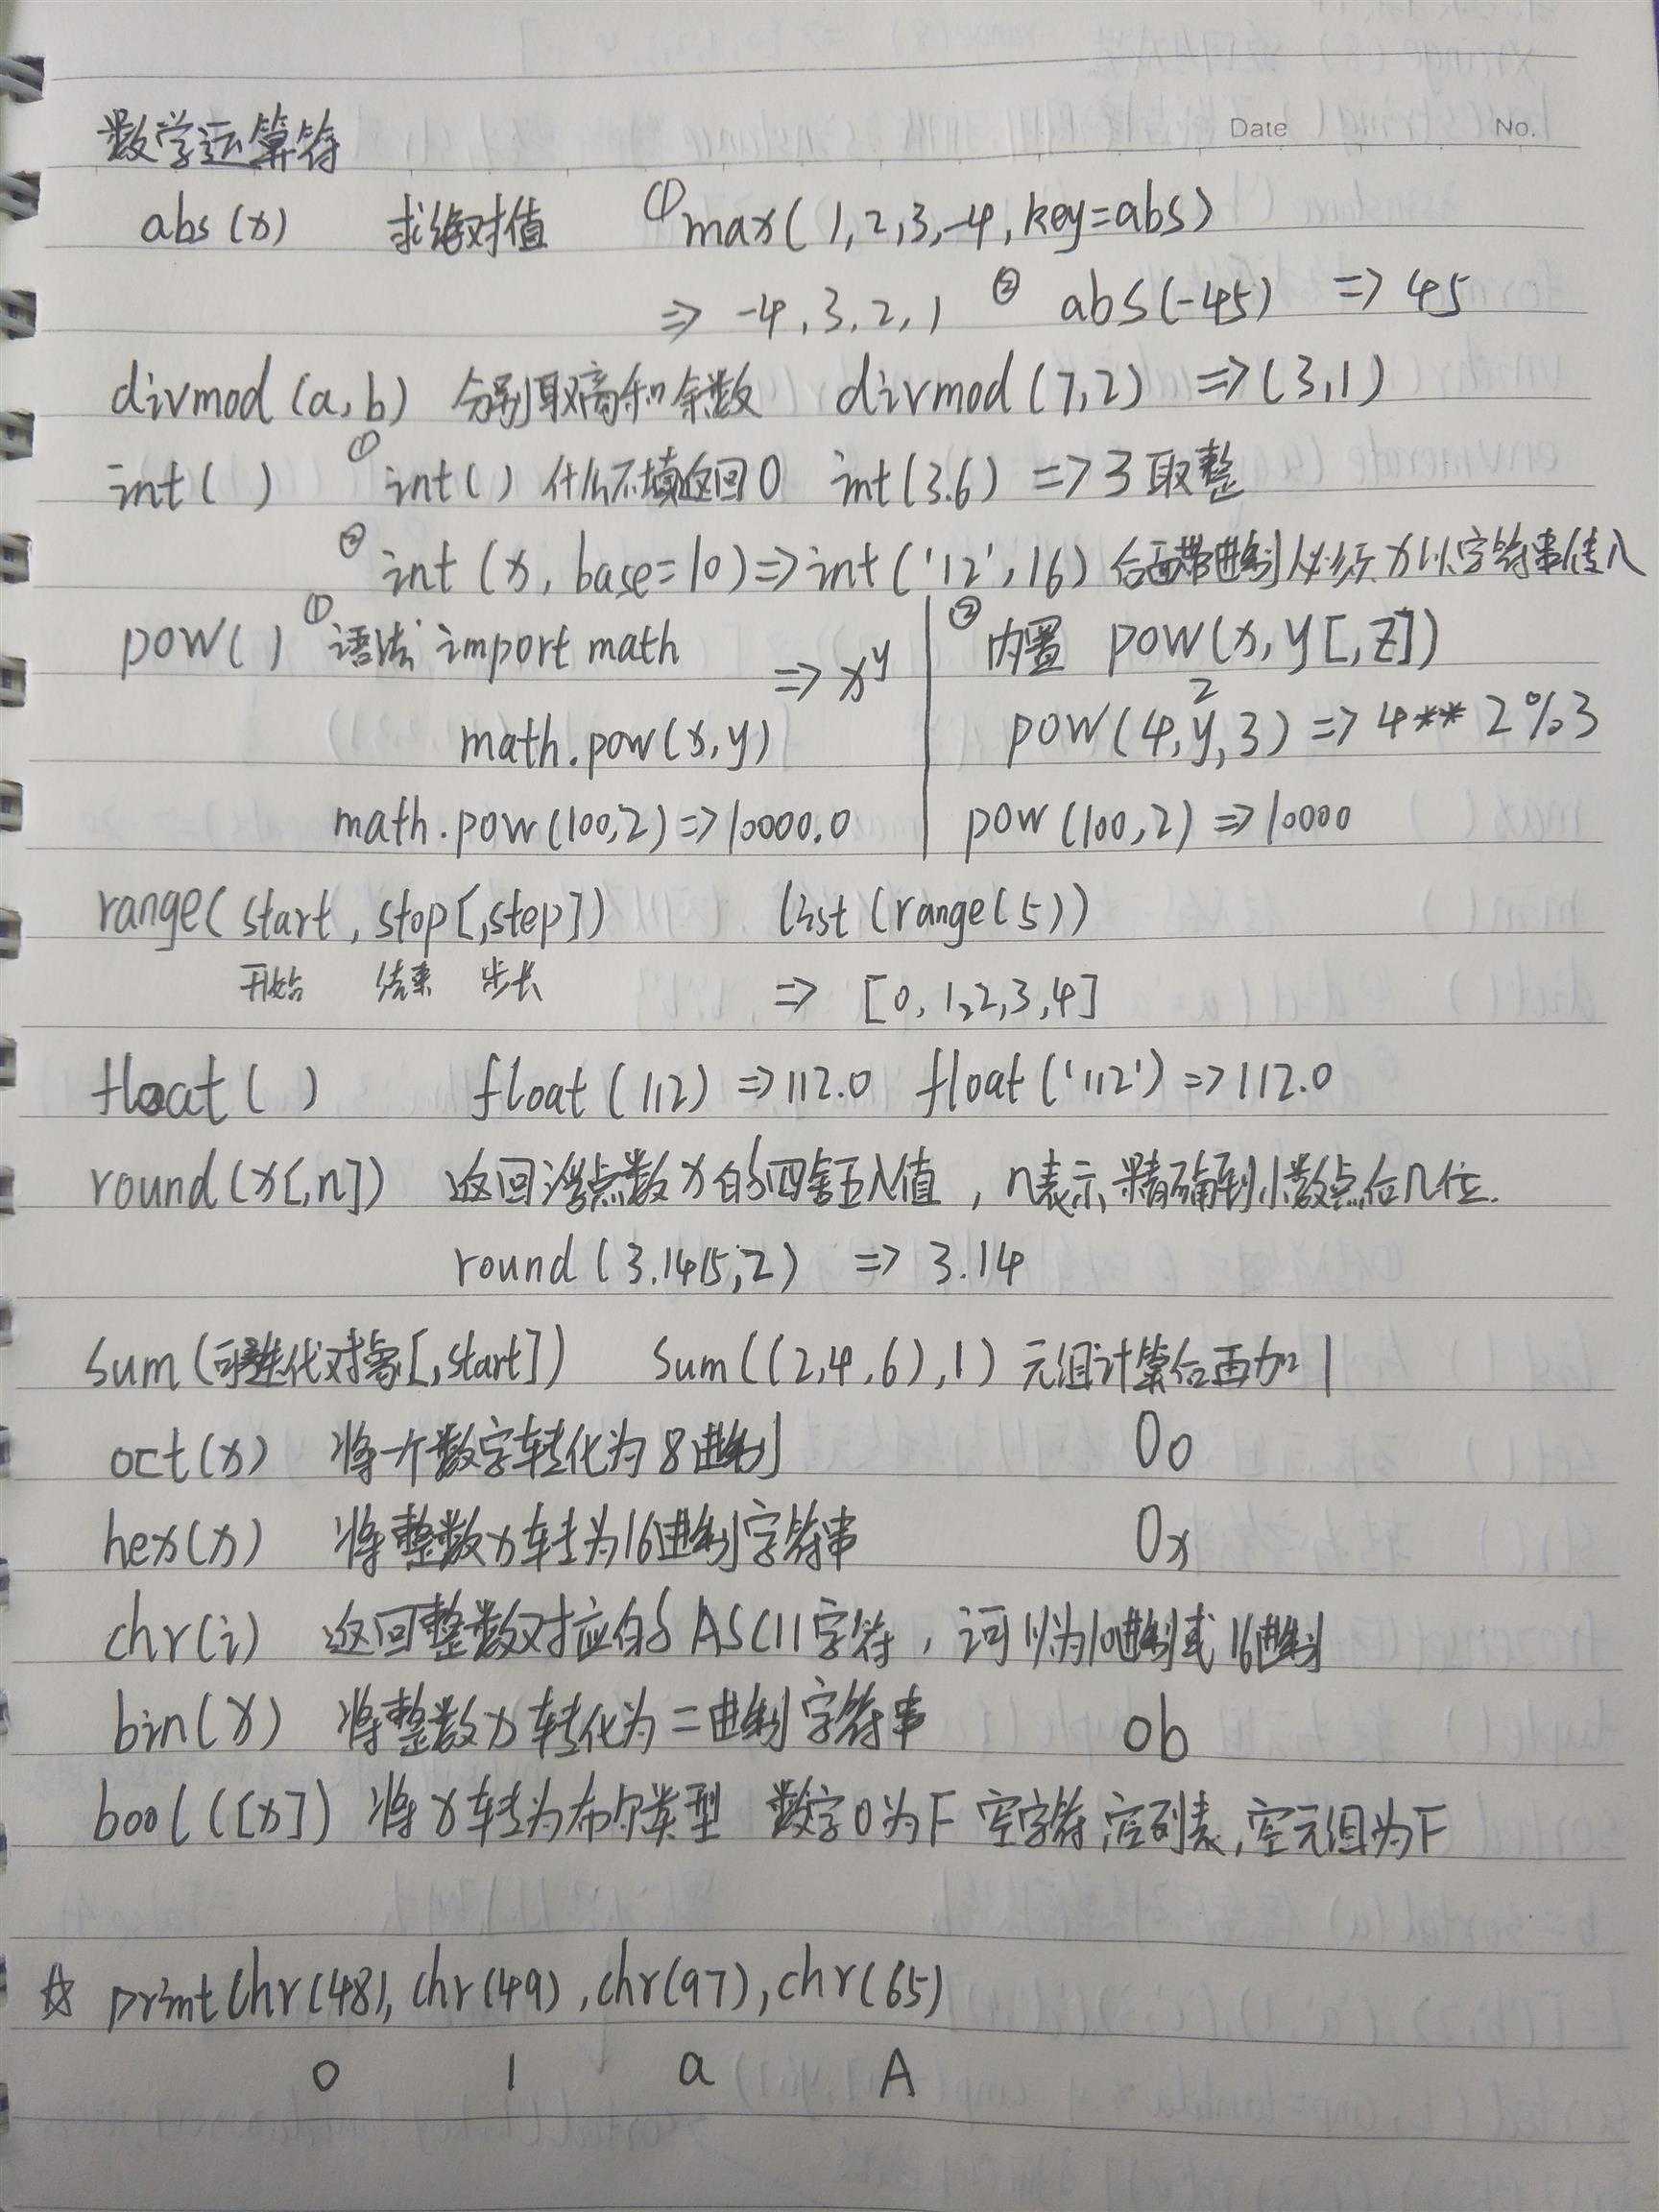 Date No.
数学运算符
abs(x) 求绝对值 ① max(1,2,3,-4,key=abs)
=> -4,3,2,1 ② abs(-45) => 45
divmod(a,b) 分别取商和余数 divmod(7,2) => (3,1)
int( ) ① int( ) 什么不填返回0 int(3.6) => 3取整
② int(x,base=10)=>int('12',16) 后面带进制必须x以字符串传入
pow( ) ① 语法 import math => x^y ② 内置 pow(x,y[,z])
math.pow(x,y) pow(4,y,3) => 4**2%3
2
math.pow(100,2)=>10000.0 pow(100,2)=>10000
range(start,stop[,step]) list(range(5))
开始 结束 步长 => [0,1,2,3,4]
float( ) float(112)=>112.0 float('112')=>112.0
round(x[,n]) 返回浮点数x的四舍五入值，n表示精确到小数点后n位.
round(3.1415,2) => 3.14
sum(可迭代对象[,start]) sum((2,4,6),1) 元组计算后再加1
oct(x) 将一个数字转化为8进制 0o
hex(x) 将整数x转为16进制字符串 0x
chr(i) 返回整数对应的ASCII字符，i可以为10进制或16进制
bin(x) 将整数x转化为二进制字符串 0b
bool([x]) 将x转为布尔类型 数字0为F 空字符,空列表,空元组为F
☆ print chr(48),chr(49),chr(97),chr(65)
0 1 a A